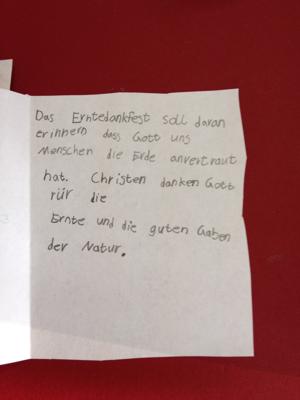 Das Erntedankfest soll daran
erinnern dass Gott uns
Menschen die Erde anvertraut
hat. Christen danken Gott
rür die
Ernte und die guten Gaben
der Natur.